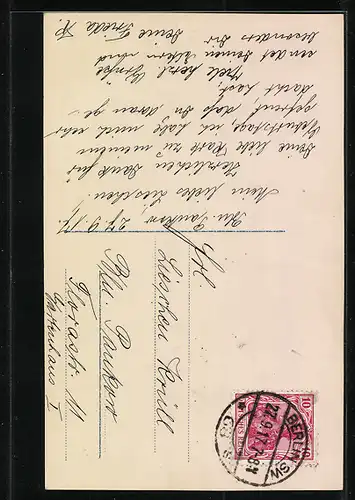 Bln. Pankow 27.9.17.
Mein liebes Lieschen.
Herzlichen Dank für
Deine liebe Karte zu meinem
Geburtstage, ich habe mich sehr
gefreut daß Du daran ge-
dacht hast.
Viele herzl. Grüße
sendet Deinen Eltern und
besonders Dir
Deine Friede K.
Frl.
Lieschen Krüll
Bln. Pankow
Florastr. 11
Gartenhaus I
BERLIN SW
27.9.17. 7-8N
10